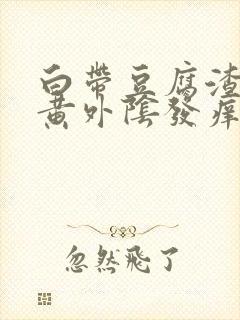 白帶豆腐渣
黃外陰發痒
忽然飛了